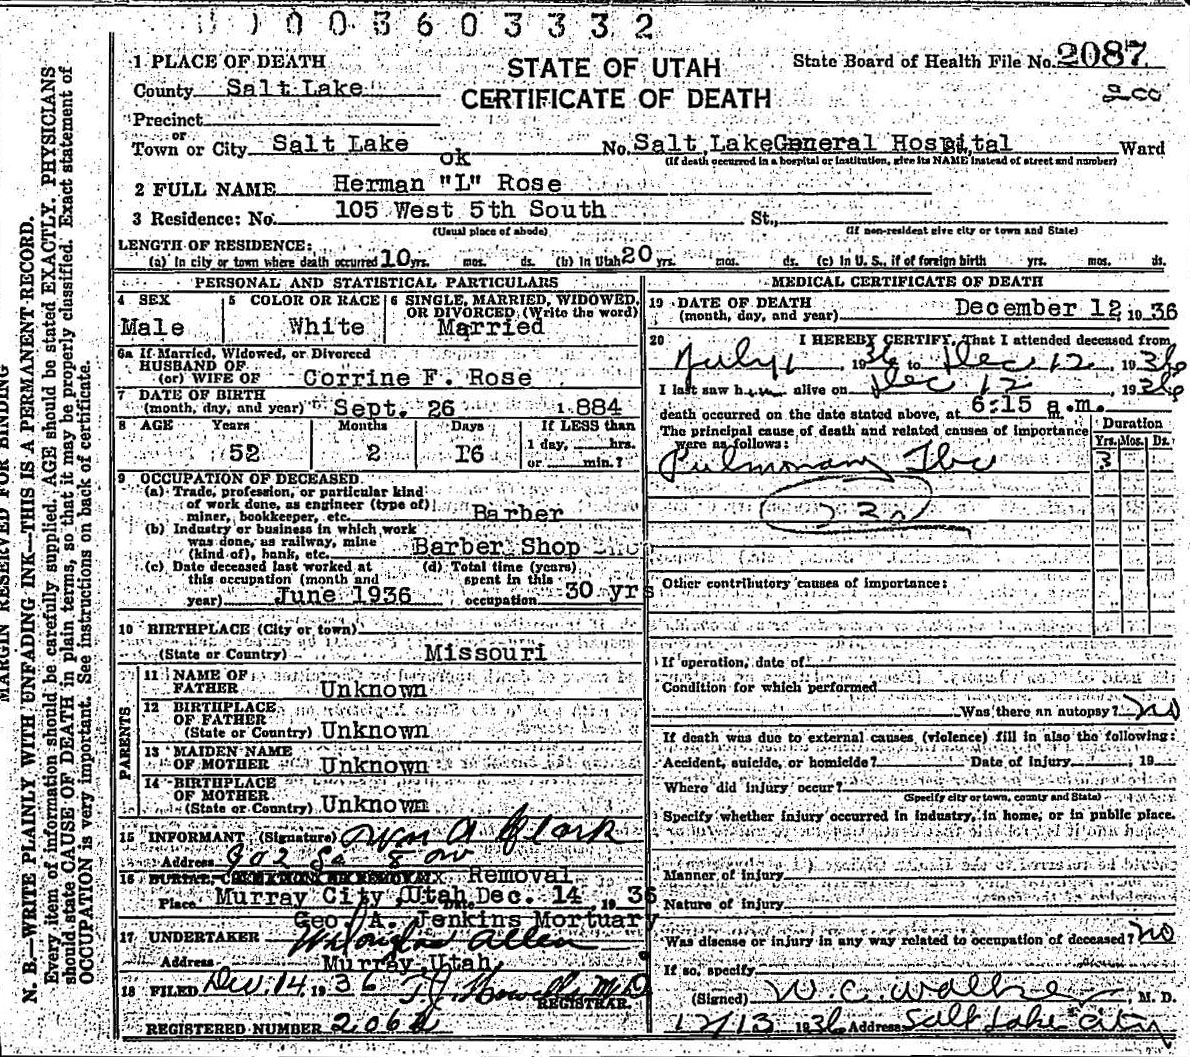 0 0 3 6 0 3 3 3 2
STATE OF UTAH
CERTIFICATE OF DEATH
State Board of Health File No. 2087
1 PLACE OF DEATH
County Salt Lake
Precinct
or
Town or City Salt Lake No. Salt Lake General Hospital Ward
(If death occurred in a hospital or institution, give its NAME instead of street and number)
ok
2 FULL NAME Herman "L" Rose
3 Residence: No. 105 West 5th South St.,
(Usual place of abode) (If non-resident give city or town and State)
LENGTH OF RESIDENCE:
(a) In city or town where death occurred 10 yrs. mos. ds. (b) In Utah 20 yrs. mos. ds. (c) In U. S., if of foreign birth yrs. mos. ds.
PERSONAL AND STATISTICAL PARTICULARS
4 SEX Male
5 COLOR OR RACE White
6 SINGLE, MARRIED, WIDOWED, OR DIVORCED (Write the word) Married
6a If Married, Widowed, or Divorced
HUSBAND OF
(or) WIFE OF Corrine F. Rose
7 DATE OF BIRTH
(month, day, and year) Sept. 26 1884
8 AGE Years Months Days If LESS than
52 2 16 1 day, hrs.
or min.?
9 OCCUPATION OF DECEASED
(a) Trade, profession, or particular kind
of work done, as engineer (type of)
miner, bookkeeper, etc. Barber
(b) Industry or business in which work
was done, as railway, mine
(kind of), bank, etc. Barber Shop
(c) Date deceased last worked at (d) Total time (years)
this occupation (month and spent in this
year) June 1936 occupation 30 yrs
10 BIRTHPLACE (City or town)
(State or Country) Missouri
PARENTS
11 NAME OF
FATHER Unknown
12 BIRTHPLACE
OF FATHER
(State or Country) Unknown
13 MAIDEN NAME
OF MOTHER Unknown
14 BIRTHPLACE
OF MOTHER
(State or Country) Unknown
15 INFORMANT (Signature) Wm A Clark
Address 902 So 8 W
16 BURIAL, CREMATION OR REMOVAL Removal
Place Murray City Utah Date Dec. 14 1936
Geo. A. Jenkins Mortuary
17 UNDERTAKER W Douglas Allen
Address Murray Utah
18 FILED Dec. 14, 1936 T. J. Howells M.D.
REGISTRAR.
REGISTERED NUMBER
MEDICAL CERTIFICATE OF DEATH
19 DATE OF DEATH
(month, day, and year) December 12, 1936
20 I HEREBY CERTIFY, That I attended deceased from
July 1 1936 to Dec 12, 1936
I last saw him alive on Dec 12, 1936
death occurred on the date stated above, at 6:15 a.m. m.
The principal cause of death and related causes of importance
were as follows:
Duration
Yrs. Mos. Ds.
Pulmonary Tbc 3
Other contributory causes of importance:
If operation, date of
Condition for which performed
Was there an autopsy? no
If death was due to external causes (violence) fill in also the following:
Accident, suicide, or homicide? Date of injury , 19
Where did injury occur?
(Specify city or town, county and State)
Specify whether injury occurred in industry, in home, or in public place.
Manner of injury
Nature of injury
Was disease or injury in any way related to occupation of deceased? no
If so, specify
(Signed) W. C. Walker, M. D.
12/13 1936 Address Salt Lake City
MARGIN RESERVED FOR BINDING
N. B.—WRITE PLAINLY WITH UNFADING INK—THIS IS A PERMANENT RECORD.
Every item of information should be carefully supplied. AGE should be stated EXACTLY. PHYSICIANS
should state CAUSE OF DEATH in plain terms, so that it may be properly classified. Exact statement of
OCCUPATION is very important. See instructions on back of certificate.